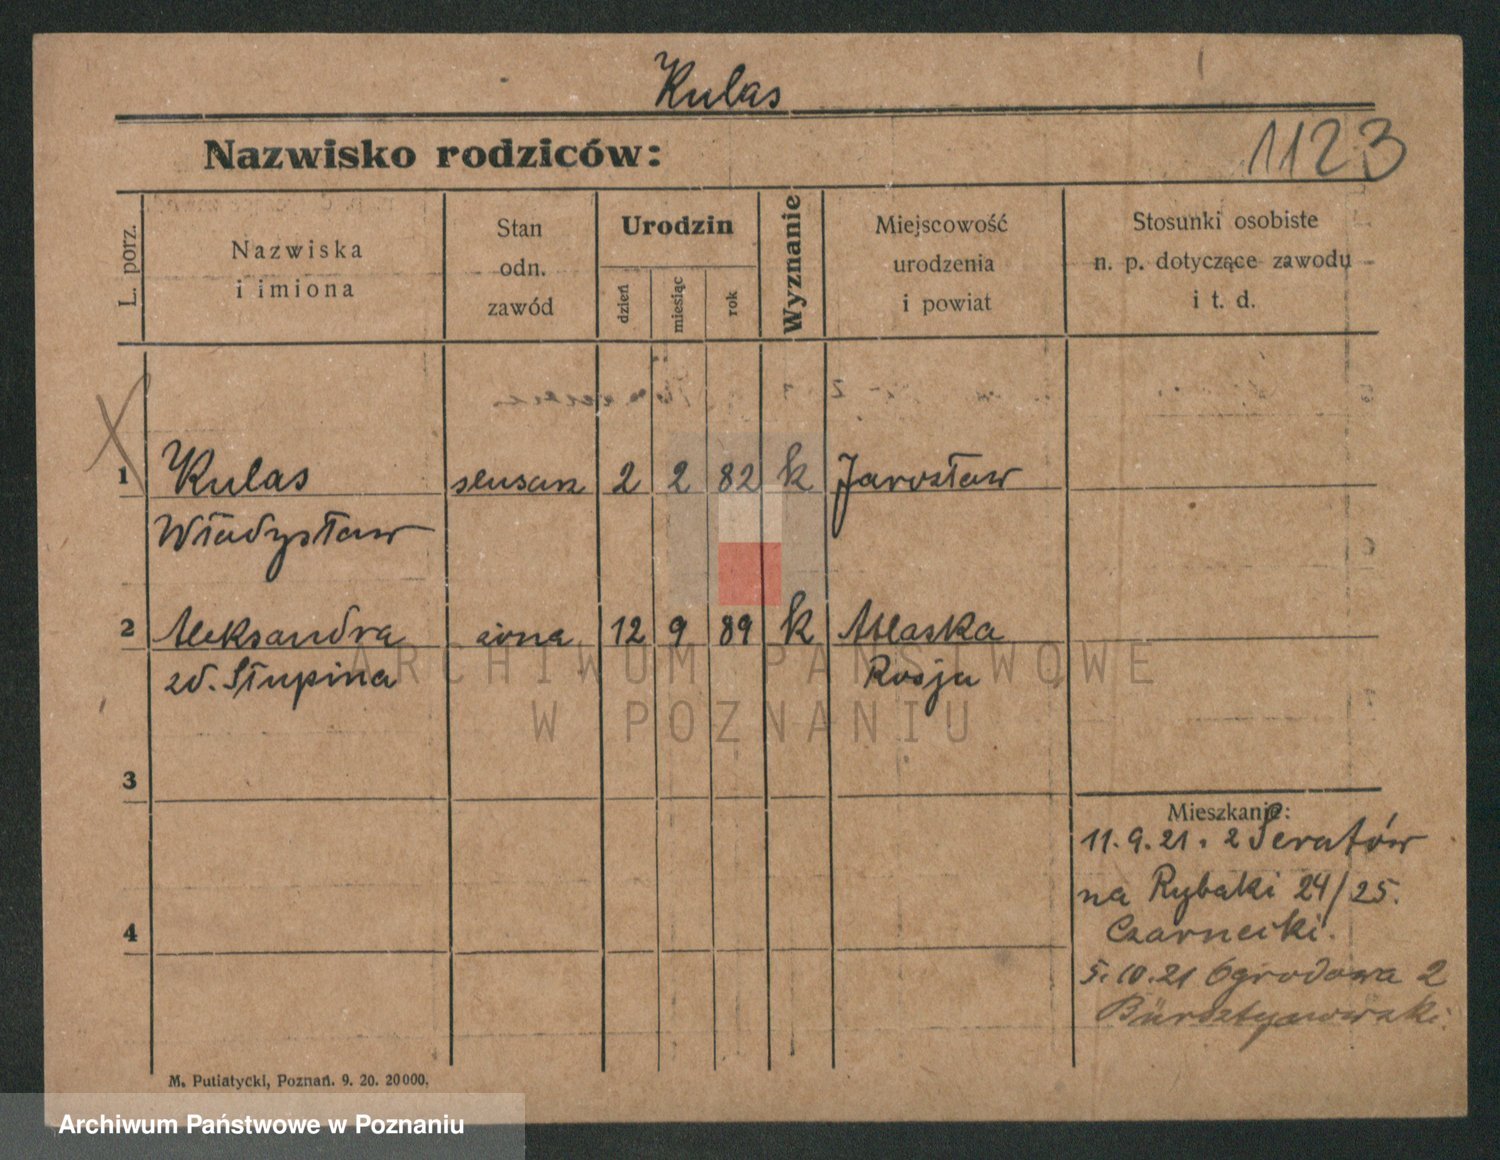 Kulas
Nazwisko rodziców:
1123
L. porz.
Nazwiska
i imiona
Stan
odn.
zawód
Urodzin
dzień
miesiąc
rok
Wyznanie
Miejscowość
urodzenia
i powiat
Stosunki osobiste
n. p. dotyczące zawodu
i t. d.
1 Kulas ślusarz 2 2 82 k Jarosław
Władysław
2 Aleksandra żona 12 9 89 k
zd. Stupina Rosja
3
4
Mieszkanie:
11.9.21. z Seratów
na Rybaki 24/25.
Czarnecki.
5.10.21 Ogrodowa 2
M. Putiatycki, Poznań. 9. 20. 20000.
ARCHIWUM PAŃSTWOWE
W POZNANIU
Archiwum Państwowe w Poznaniu